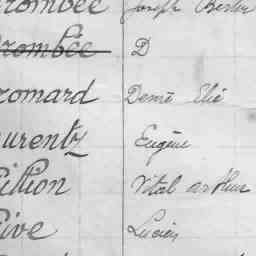 rombée Joseph
rombée D
romard Désiré Elie
urentz Eugène
illion Vital arthur
ive Lucien